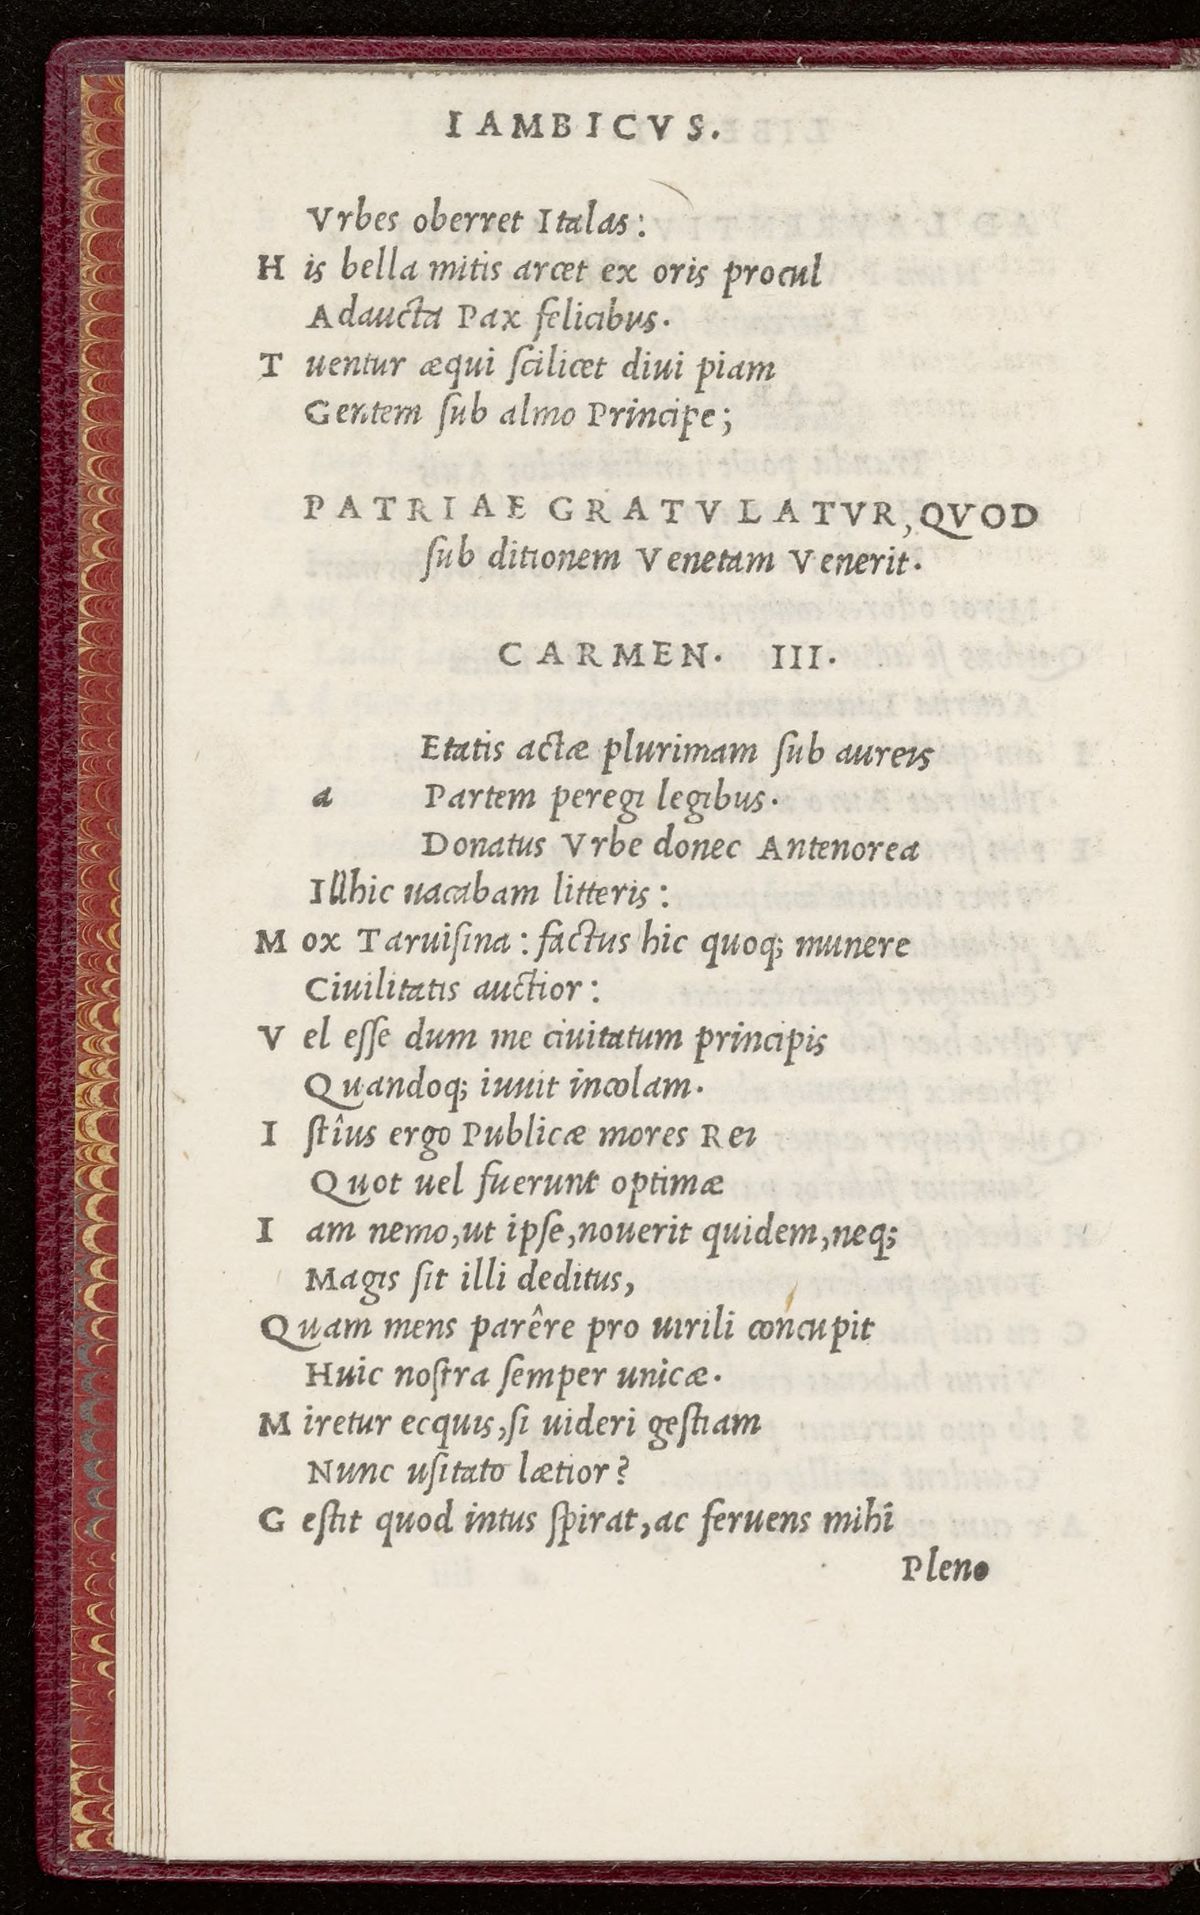 IAMBICVS.
Vrbes oberret Italas:
His bella mitis arcet ex oris procul
Adaucta Pax felicibus.
Tuentur æqui ſcilicet diui piam
Gentem ſub almo Principe;
PATRIAE GRATVLATVR, QVOD
ſub ditionem Venetam Venerit.
CARMEN. III.
Etatis actæ plurimam ſub aureis
a Partem peregi legibus.
Donatus Vrbe donec Antenorea
Illhic uacabam litteris:
Mox Taruiſina: factus hic quoq; munere
Ciuilitatis auctior:
Vel eſſe dum me ciuitatum principis
Quandoq; iuuit incolam.
Iſtîus ergo Publicæ mores Rei
Quot uel fuerunt optimæ
Iam nemo, ut ipſe, nouerit quidem, neq;
Magis ſit illi deditus,
Quam mens parêre pro uirili concupit
Huic noſtra ſemper unicæ.
Miretur ecquis, ſi uideri geſtiam
Nunc uſitato lætior?
Geſtit quod intus ſpirat, ac feruens mihî
Pleno